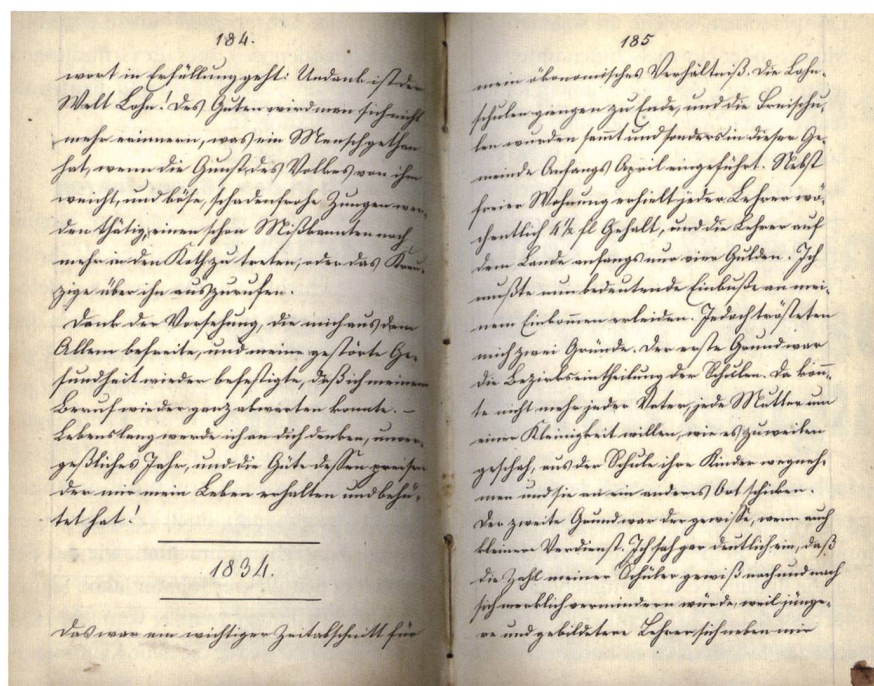 184.
wort in Erfüllung geht: Undank ist der
Welt Lohn! Des Guten wird man sich nicht
mehr erinnern, was ein Mensch gethan
hat, wenn die Gunst des Volkes von ihm
weicht, und böse, schadenfrohe Zungen wer-
den thätig, einen schon Mißkannten noch
mehr in den Koth zu treten, oder das Kreu-
zige über ihn auszurufen.
Dank der Vorsehung, die mich aus dem
Allem befreite, und meine gestörte Ge-
sundheit wieder befestigte, daß ich meinem
Beruf wieder ganz abwarten konnte. –
Lebenslang werde ich an dich denken, unver-
geßliches Jahr, und die Güte dessen preisen
der mir mein Leben erhalten und behü-
tet hat!
1834.
Das war ein wichtiger Zeitabschnitt für
185
mein ökonomisches Verhältniß. Die Lohn-
schulen giengen zu Ende, und die Freischu-
len wurden sammt und sonders in dieser Ge-
meinde Anfangs April eingeführt. Nebst
freier Wohnung erhielt jeder Lehrer wö-
chentlich 4½ fl Gehalt, und die Lehrer auf
dem Lande anfangs nur vier Gulden. Ich
mußte nun bedeutende Einbuße an mei-
nem Einkommen erleiden. Jedoch trösteten
mich zwei Gründe. Der erste Grund war
die Bezirkseintheilung der Schulen. Da konn-
te nicht mehr jeder Vater, jede Mutter um
einer Kleinigkeit willen, wie es zuweilen
geschah, aus der Schule ihre Kinder wegneh-
men und sie an ein anderes Ort schicken.
Der zweite Grund war der gewisse, wenn auch
kleinere Verdienst. Ich sah gar deutlich ein, daß
die Zahl meiner Schüler gewiß nach und nach
sich merklich vermindern würde, weil jünge-
re und gebildetere Lehrer sich neben mir